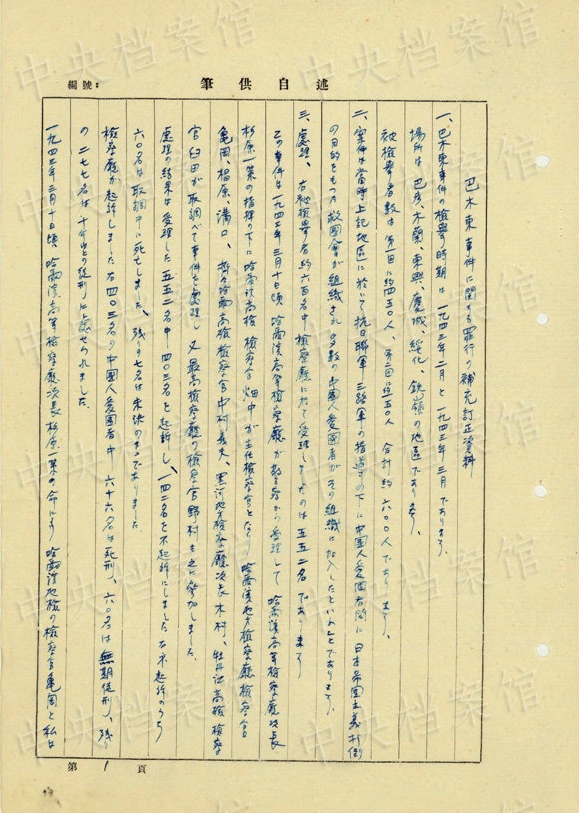 編號：
筆供自述
巴木東事件に関する罪行の補充訂正資料
一、巴木東事件の檢擧の時期は一九四三年二月と一九四三年三月であります、
場所は巴彦、木蘭、東興、慶城、綏化、鉄嶺の地區であります、
被檢擧者数は第一回に約四五〇人、第二回は一五〇人 合計約六〇〇人であります、
二、案件は當時上記地區に於いて抗日聯軍三路軍の指導の下に中国人愛国者間に日本帝国主義打倒
の目的をもつ救国會が組織され多数の中国人愛国者がその組織に加入したといふことであります、
三、處理、右被檢擧者約六百名中檢察廳に於て受理しましたのは五五二名であります
この事件は一九四三年三月十日頃、哈爾濱高等檢察廳が警察から受理して哈爾濱高等檢察廳次長
杉原一策の指揮の下に哈爾濱高檢檢察官畑中が主任檢察官となり哈爾濱地方檢察廳檢察官
亀岡、楫原、溝口、哈爾濱高檢檢察官中村義夫、黒河地方檢察廳次長木村、牡丹江高檢檢察
官臼田が取調べて事件を處理し又最高檢察廳の檢察官野村も之に參加しました、
處理の結果は受理した五五二名中四〇三名を起訴し、一四二名を不起訴にしました右不起訴のうち
六〇名は取調中に死亡しました、残り七名は未決のまゝでありました
檢察廳が起訴しました右四〇三名の中国人愛国者中六十六名は死刑、六〇名は無期徒刑、残り
の二七七名は十年以上の徒刑に處せられました、
一九四三年三月十日頃、哈爾濱高等檢察廳次長杉原一策の命により哈爾濱地檢の檢察官亀岡と私は
第 1 頁
中央档案馆